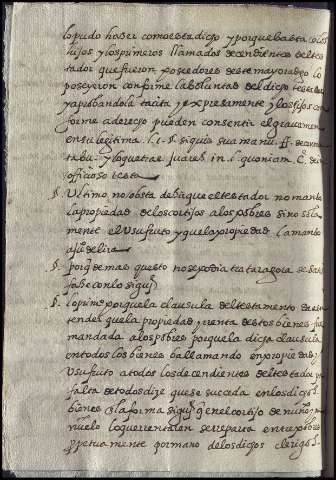 lo pudo haser como esta dicho y porque basta q̃ los
hijos y los primeros llamados decendientes del tes
tador que fueron poseedores deste mayoradgo lo
poseyeron conforme a la boluntad del dicho testador
y aprobandola tacita y expresamente y los hijos con
forme a derecho pueden consentir el gravamen
en su legitima l. 1. §. si quis sua manu ff. de
tabu. y lo que trae suares in l. quoniam C. de in
officioso testa
§. Ultimo no obsta desir que el testador no mando
la propiedad de los cortijos a los pobres sino sola
mente el usufruto y que la propiedad la mando
§. porq̃ demas questo no se podia tratar agora se satis
fase con lo sigu.
§. lo primo porque la clausula del testamento
tender que la propiedad y renta destos bienes fue
mandada a los pobres porque la dicha clausula
en todos los bienes ba llamando en propiedad y
usufruto a todos los decendientes del testador y a
falta de todos dize que se susceda en los dichos
bienes en la forma sigu. q̃ en el cortijo de nuño
nuelo lo que rentare se reparta entre pobres
perpetuamente por mano de los dichos clerigos